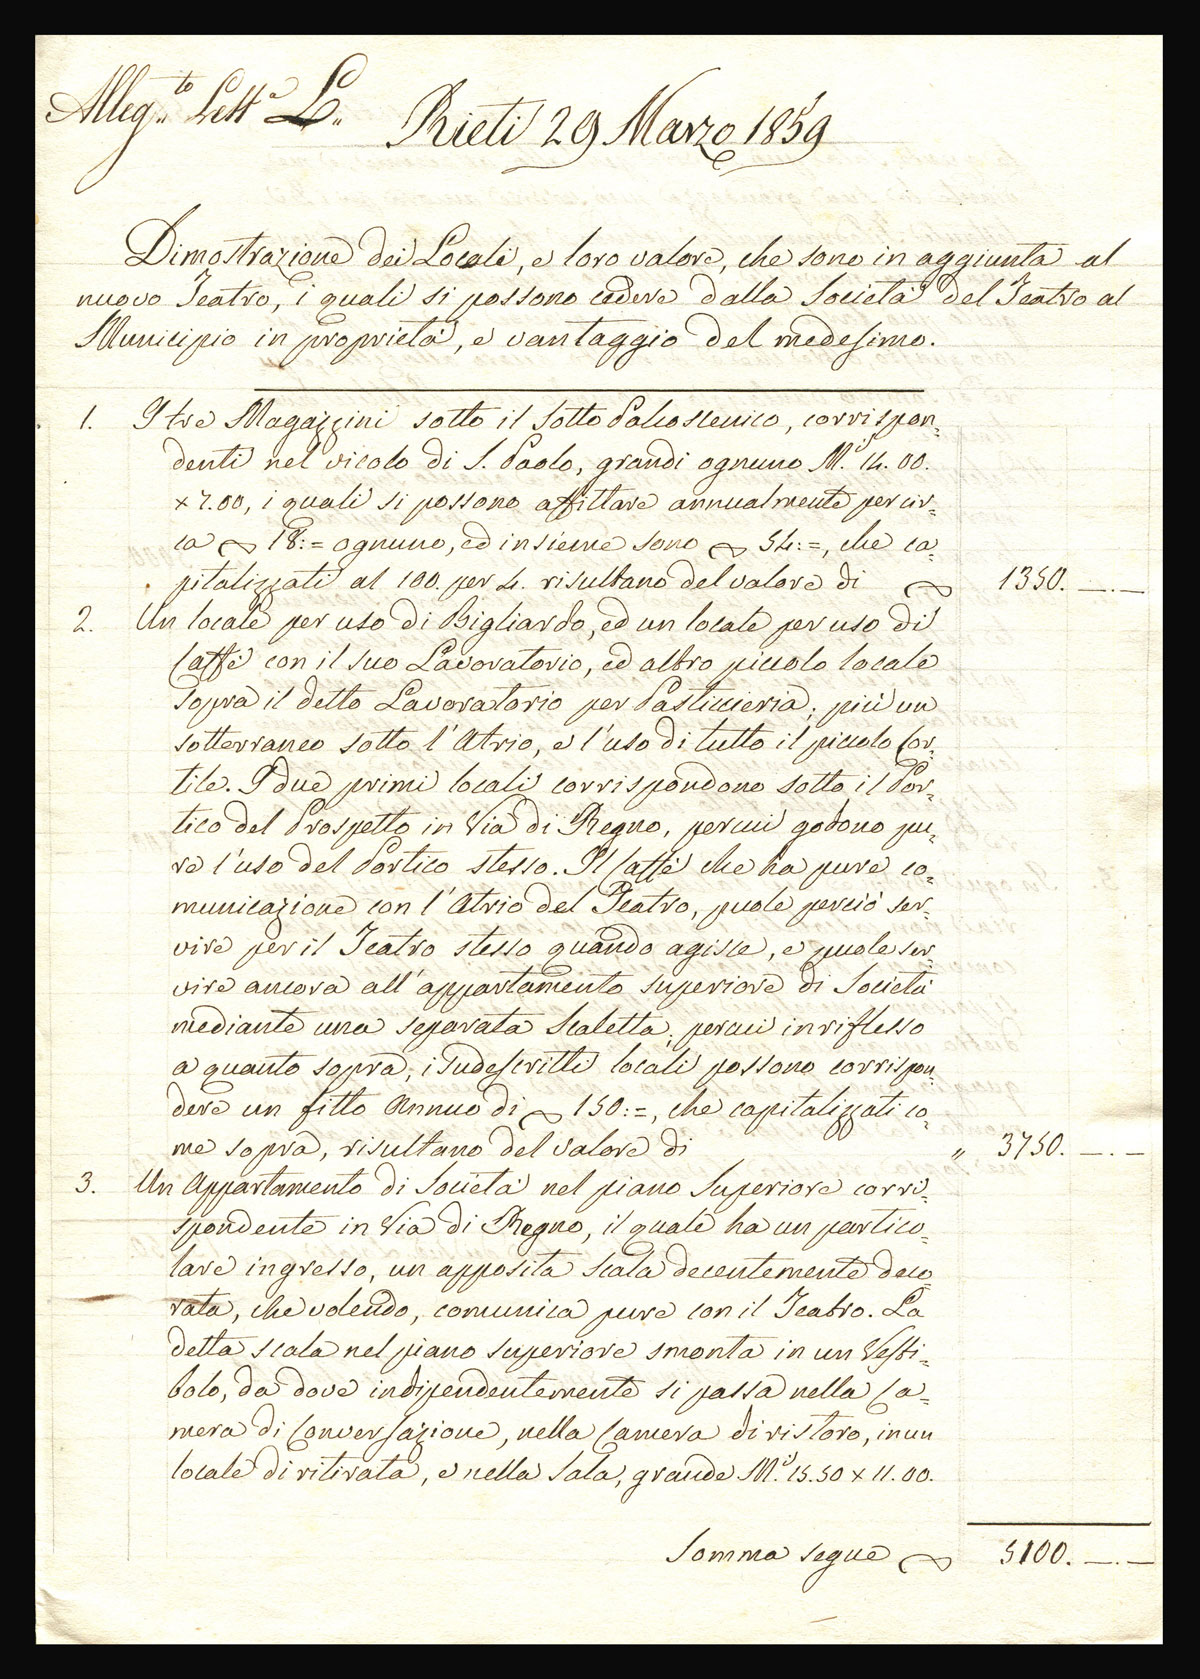 Alleg.to Lett.a L.
Rieti 29 Marzo 1859
Dimostrazione dei Locali, e loro valore, che sono in aggiunta al
nuovo Teatro, i quali si possono cedere dalla Società del Teatro al
Municipio in proprietà, e vantaggio del medesimo.
1. I tre Magazzini sotto il Sotto Palcoscenico, corrispon=
denti nel vicolo di S. Paolo, grandi ognuno M.i 14.00.
× 7.00, i quali si possono affittare annualmente per cir=
ca 18:= ognuno, ed insieme sono 54:=, che ca=
pitalizzati al 100. per 4. risultano del valore di 1350. —.—
2. Un locale per uso di Bigliardo, ed un locale per uso di
Caffè con il suo Lavoratorio, ed altro piccolo locale
sopra il detto Lavoratorio per Pasticcieria; più un
sotterraneo sotto l'Atrio, e l'uso di tutto il piccolo Cor=
tile. I due primi locali corrispondono sotto il Por=
tico del Prospetto in Via di Regno, percui godono pu=
re l'uso del Portico stesso. Il Caffè che ha pure co=
municazione con l'Atrio del Teatro, puole perciò ser=
vire per il Teatro stesso quando agisce, e puole ser=
vire ancora all'appartamento superiore di Società
mediante una separata Scaletta; percui in riflesso
a quanto sopra, i sudescritti locali possono corrispon=
dere un fitto Annuo di 150:=, che capitalizzati co=
me sopra, risultano del valore di " 3750. —.—
3. Un Appartamento di Società nel piano Superiore corri=
spondente in Via di Regno, il quale ha un partico=
lare ingresso, un apposita Scala decentemente deco=
rata, che volendo, comunica pure con il Teatro. La
detta scala nel piano superiore smonta in un Vesti=
bolo, da dove indipendentemente si passa nella Ca=
mera di Conversazione, nella Camera di ristoro, in un
locale di ritirata, e nella Sala, grande M.i 15.50 × 11.00.
Somma segue 5100. —.—